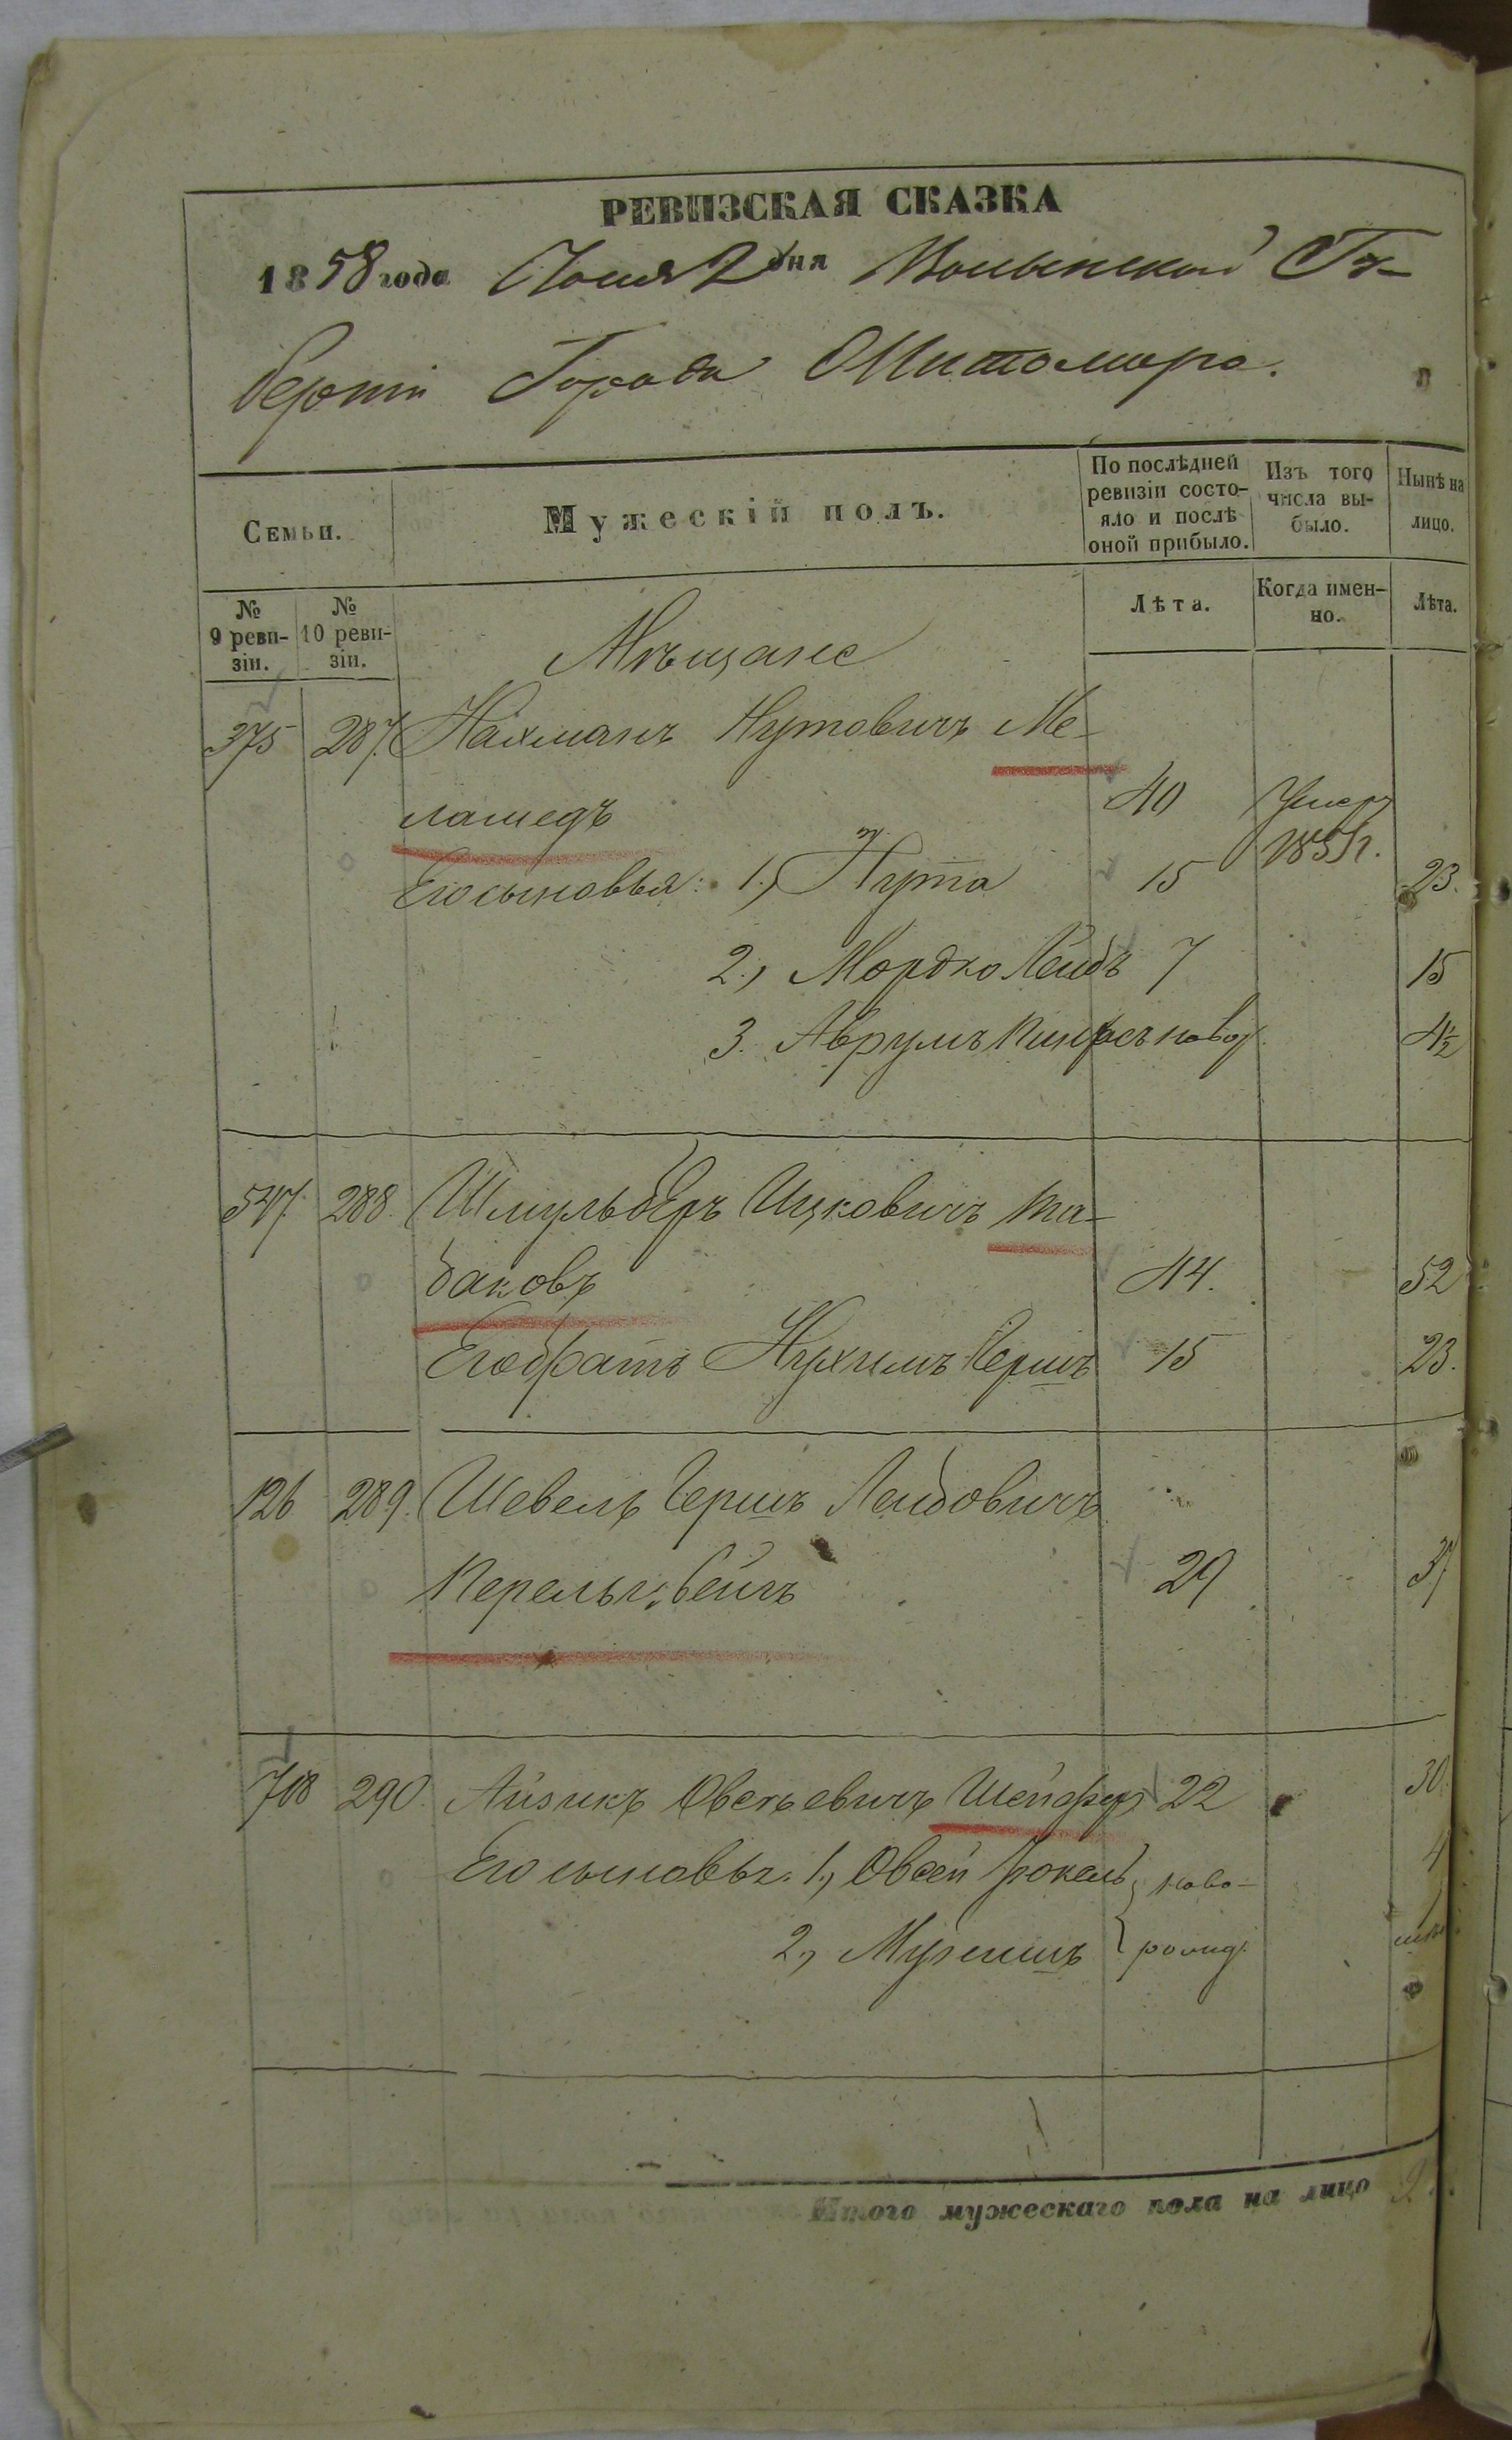 РЕВИЗСКАЯ СКАЗКА
1858 года Іюня 2 дня Волынской Гу-
берніи Города Житомира.
Семьи. Мужескій полъ. По послѣдней ревизіи состо-яло и послѣ оной прибыло. Изъ того числа вы-было. Нынѣ на лицо.
№ 9 реви-зіи. № 10 реви-зіи. Лѣта. Когда имен-но. Лѣта.
Мѣщане
375 287. Нахманъ Нутовичъ Ме-
ламедъ 40 Умеръ
Его сыновья: 1., Нута 15 23.
2., Мордко Лейбъ 7 15
3. Аврумъ Пинхасъ новор. 4½
547. 288. Шмульберъ Ицковичъ Та-
баковъ 44. 52
Его братъ Нухимъ Гершъ 15 23.
126 289. Шевель Гершъ Лейбовичъ
Перельцвейгъ 29 37
708 290. Айзикъ Овсеевичъ 22 30.
Его сыновья. 1., Овсей ново- 4
2., рожд.
Итого мужескаго пола на лицо